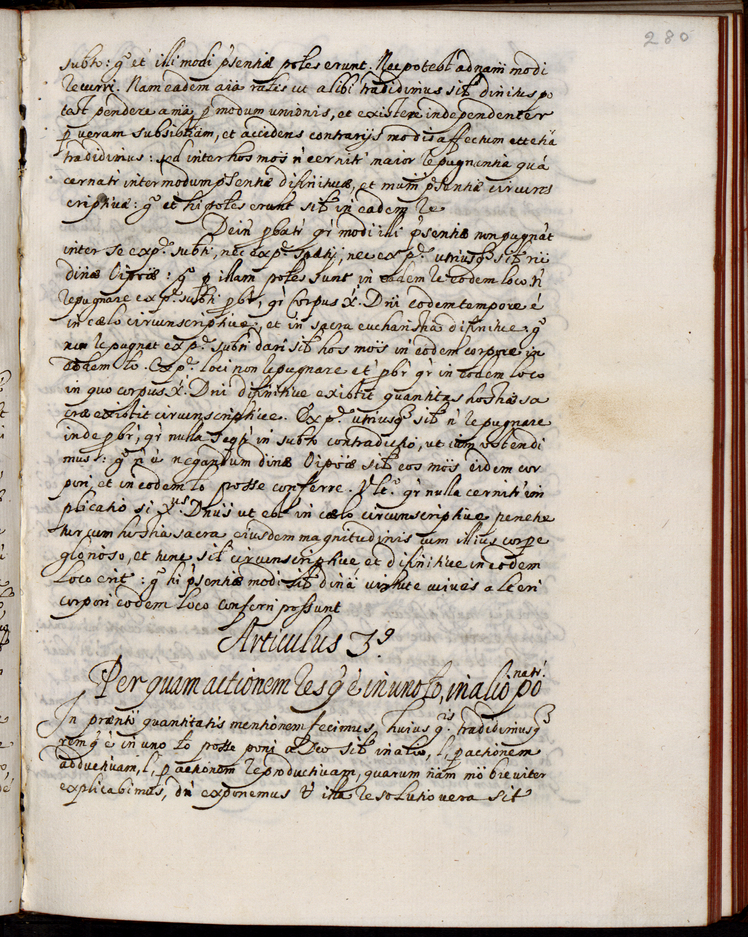 280
subto: gͦ et illi modi pñsentiæ poles erunt. Nec potest ad nam̃ modi
recurri. Nam eadem aĩa ralis ut alibi tradidimus sit dinitus po
test pendere a mã p modum unionis, et existere independenter
p veram subsistiam, et accidens contrarijs modis affectum esse etiã
tradidimus: sed inter hos mõs ñ cernit maior repugnantia quã
cernati inter modum pñsentiæ difinitivæ, et mũm pñsentiæ circuns
criptivæ: gͦ et hi poles erunt sit in eadem re
Dein pbati qr modi illi pñsentiæ non pugnãt
inter se exp. subti, nec exp. spatij, nec exp. utriusq sit
dinæ oipõæ: gͦ p illam poles sunt in eadem re eodem loco. ñ
repugnare exp. subti pbr, qr Corpus X. Dni eodem tempore ẽ
in cælo circunscriptive, et in sacra eucharistia difinitive: gͦ
non repugnat exp. subti dari sit hos mõs in eodem corpore in
eodem lo. Exp. loci non repugnare et pbr qr in eodem loco
in quo corpus X. Dni difinitive existit quantitas hostiæ sa
cræ existit circunscriptive. Exp. utriusq sit ñ repugnare
inde pbr, qr nulla seqr in subto contradictio, ut iam ostendi
mus: gͦ ñ ẽ negandum dinæ oipõæ sit eos mõs eidem cor
pori, et in eodem lo posse conferre. Ult. qr nulla cernitr im
plicatio si Xus Dnus ut est in cælo circunscriptive penetre
tur cum hostia sacra eiusdem magnitudinis cum illius corpe
glorioso, et tunc sit circunscriptive et difinitive in eodem
loco erit: gͦ hi pñsentiæ modi sit dinã virtute cuivis alteri
corpori eodem loco conferri possunt
Articulus 3.ͦ
Per quam actionem res q ẽ in uno lo, in alio põ natr.
In præntis quantitatis mentionem fecimus, huius q. tradidimusq
rem q ẽ in uno lo posse poni a Deo sit in alio, l, p actionem
adductivam, l, p actionem reproductivam, quarum nam mõ breviter
explicabimus, dñ exponemus illa resolutio vera sit